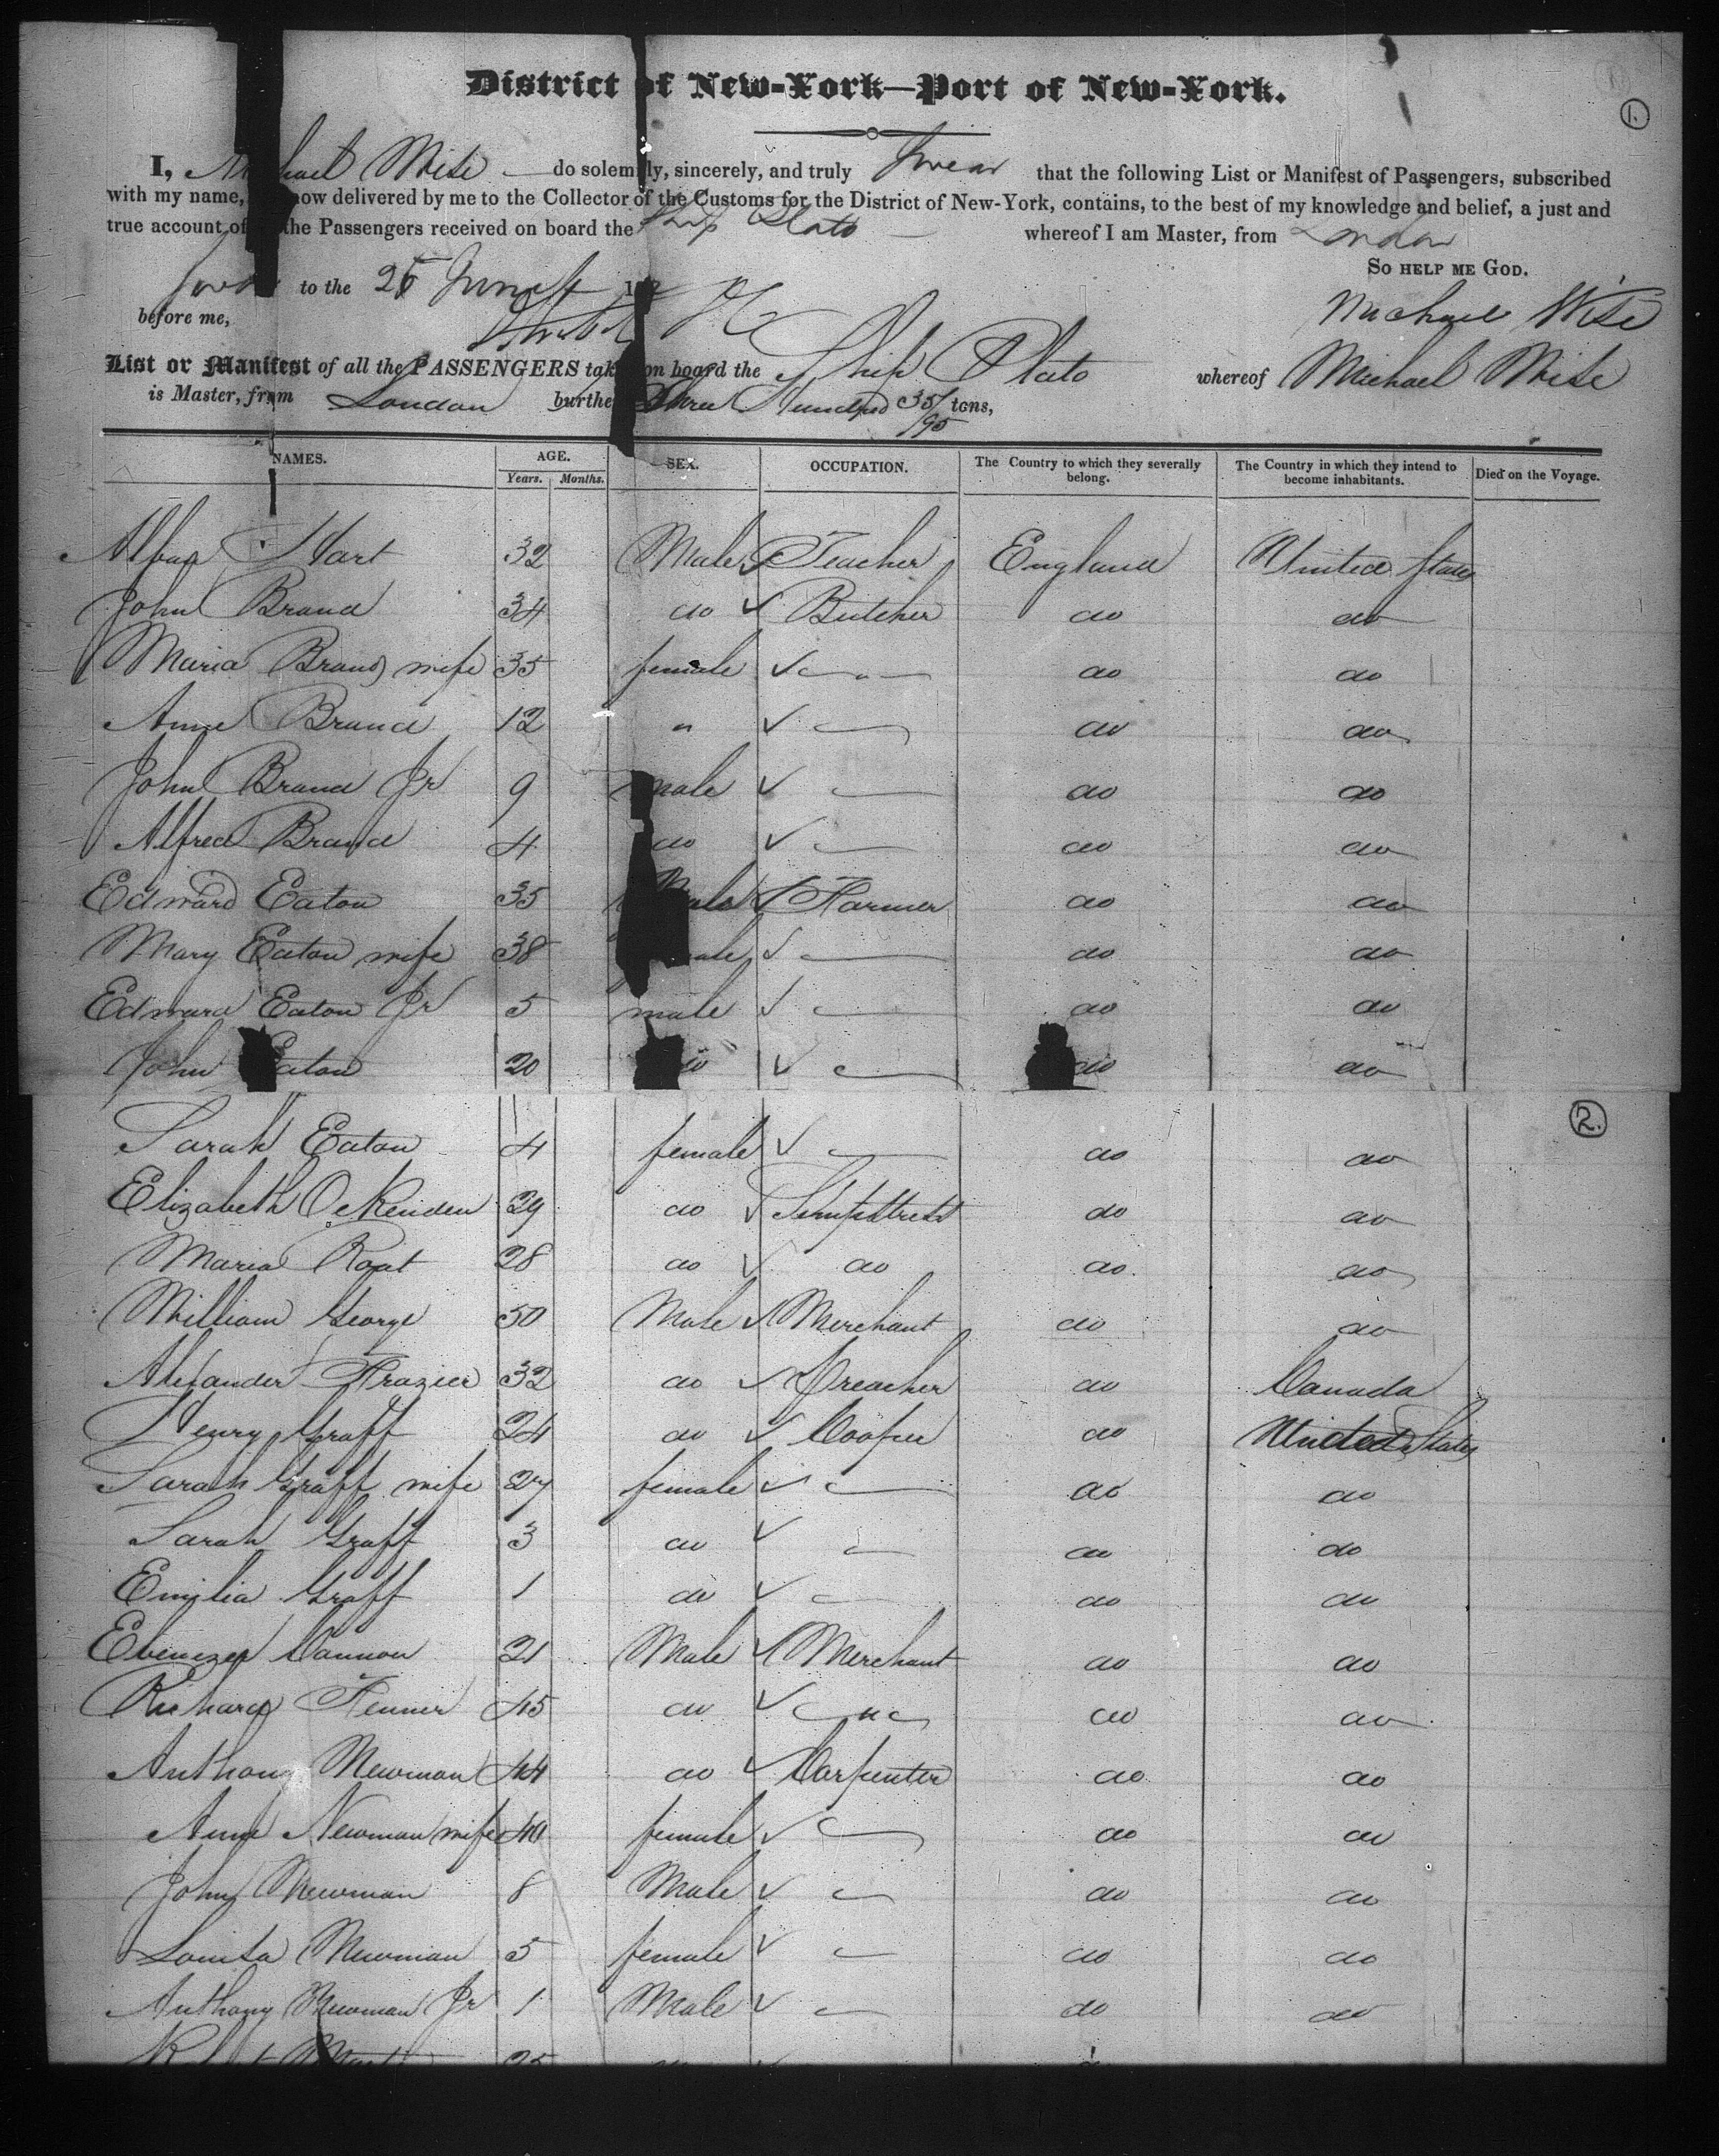 District of New-York—Port of New-York.
1.
I, Michael Wise do solemnly, sincerely, and truly swear that the following List or Manifest of Passengers, subscribed
with my name, now delivered by me to the Collector of the Customs for the District of New-York, contains, to the best of my knowledge and belief, a just and
true account of the Passengers received on board the Ship Plato whereof I am Master, from London
So help me God.
to the 25
before me,
Michael Wise
List or Manifest of all the PASSENGERS taken on board the Ship Plato whereof Michael Wise
is Master, from London burthen Three Hundred 35/95 tons,
NAMES. AGE. SEX. OCCUPATION. The Country to which they severally belong. The Country in which they intend to become inhabitants. Died on the Voyage.
Years. Months.
Hart 32 Male Teacher England United States
John Brand 34 do Butcher do do
Maria Brand wife 35 female do do
Anne Brand 12 " do do
John Brand Jr 9 male do do
Alfred Brand 4 do do do
Edward Eaton 35 Male Farmer do do
Mary Eaton wife 38 female do do
Edward Eaton Jr 5 male do do
John Eaton 20 do do do
2.
Sarah Eaton 4 female do do
Elizabeth Ockenden 29 do Sempstress do do
Maria 28 do do do do
William George 50 Male Merchant do do
Alexander Frazier 32 do Preacher do Canada
Henry Graff 24 do Cooper do United States
Sarah Graff wife 27 female do do
Sarah Graff 3 do do do
Emilia Graff 1 do do do
Ebenezer Cannon 21 Male Merchant do do
Richard Fenner 45 do " do do
Anthony Newman 44 do Carpenter do do
Anne Newman wife 40 female do do
John Newman 8 Male do do
Louisa Newman 5 female do do
Anthony Newman Jr 1 Male do do